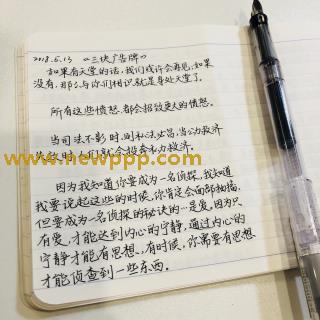 2018.5.13 《三块广告牌》
如果有天堂的话，我们或许会再见，如果
没有，那么与你们相识就是身处天堂了。
所有这些愤怒，都会招致更大的愤怒。
当司法不彰时，则私法必昌，当公力救济
失效时，人们就会投奔私力救济。
www.newppp.com
因为我知道你要成为一名侦探，我知道
我要说起这些的时候，你肯定会面部抽搐，
但要成为一名侦探的秘诀的…是爱，因为只
有爱，才能达到内心的宁静，通过内心的
宁静才能有思想，有时候，你需要有思想
才能侦查到一些东西。